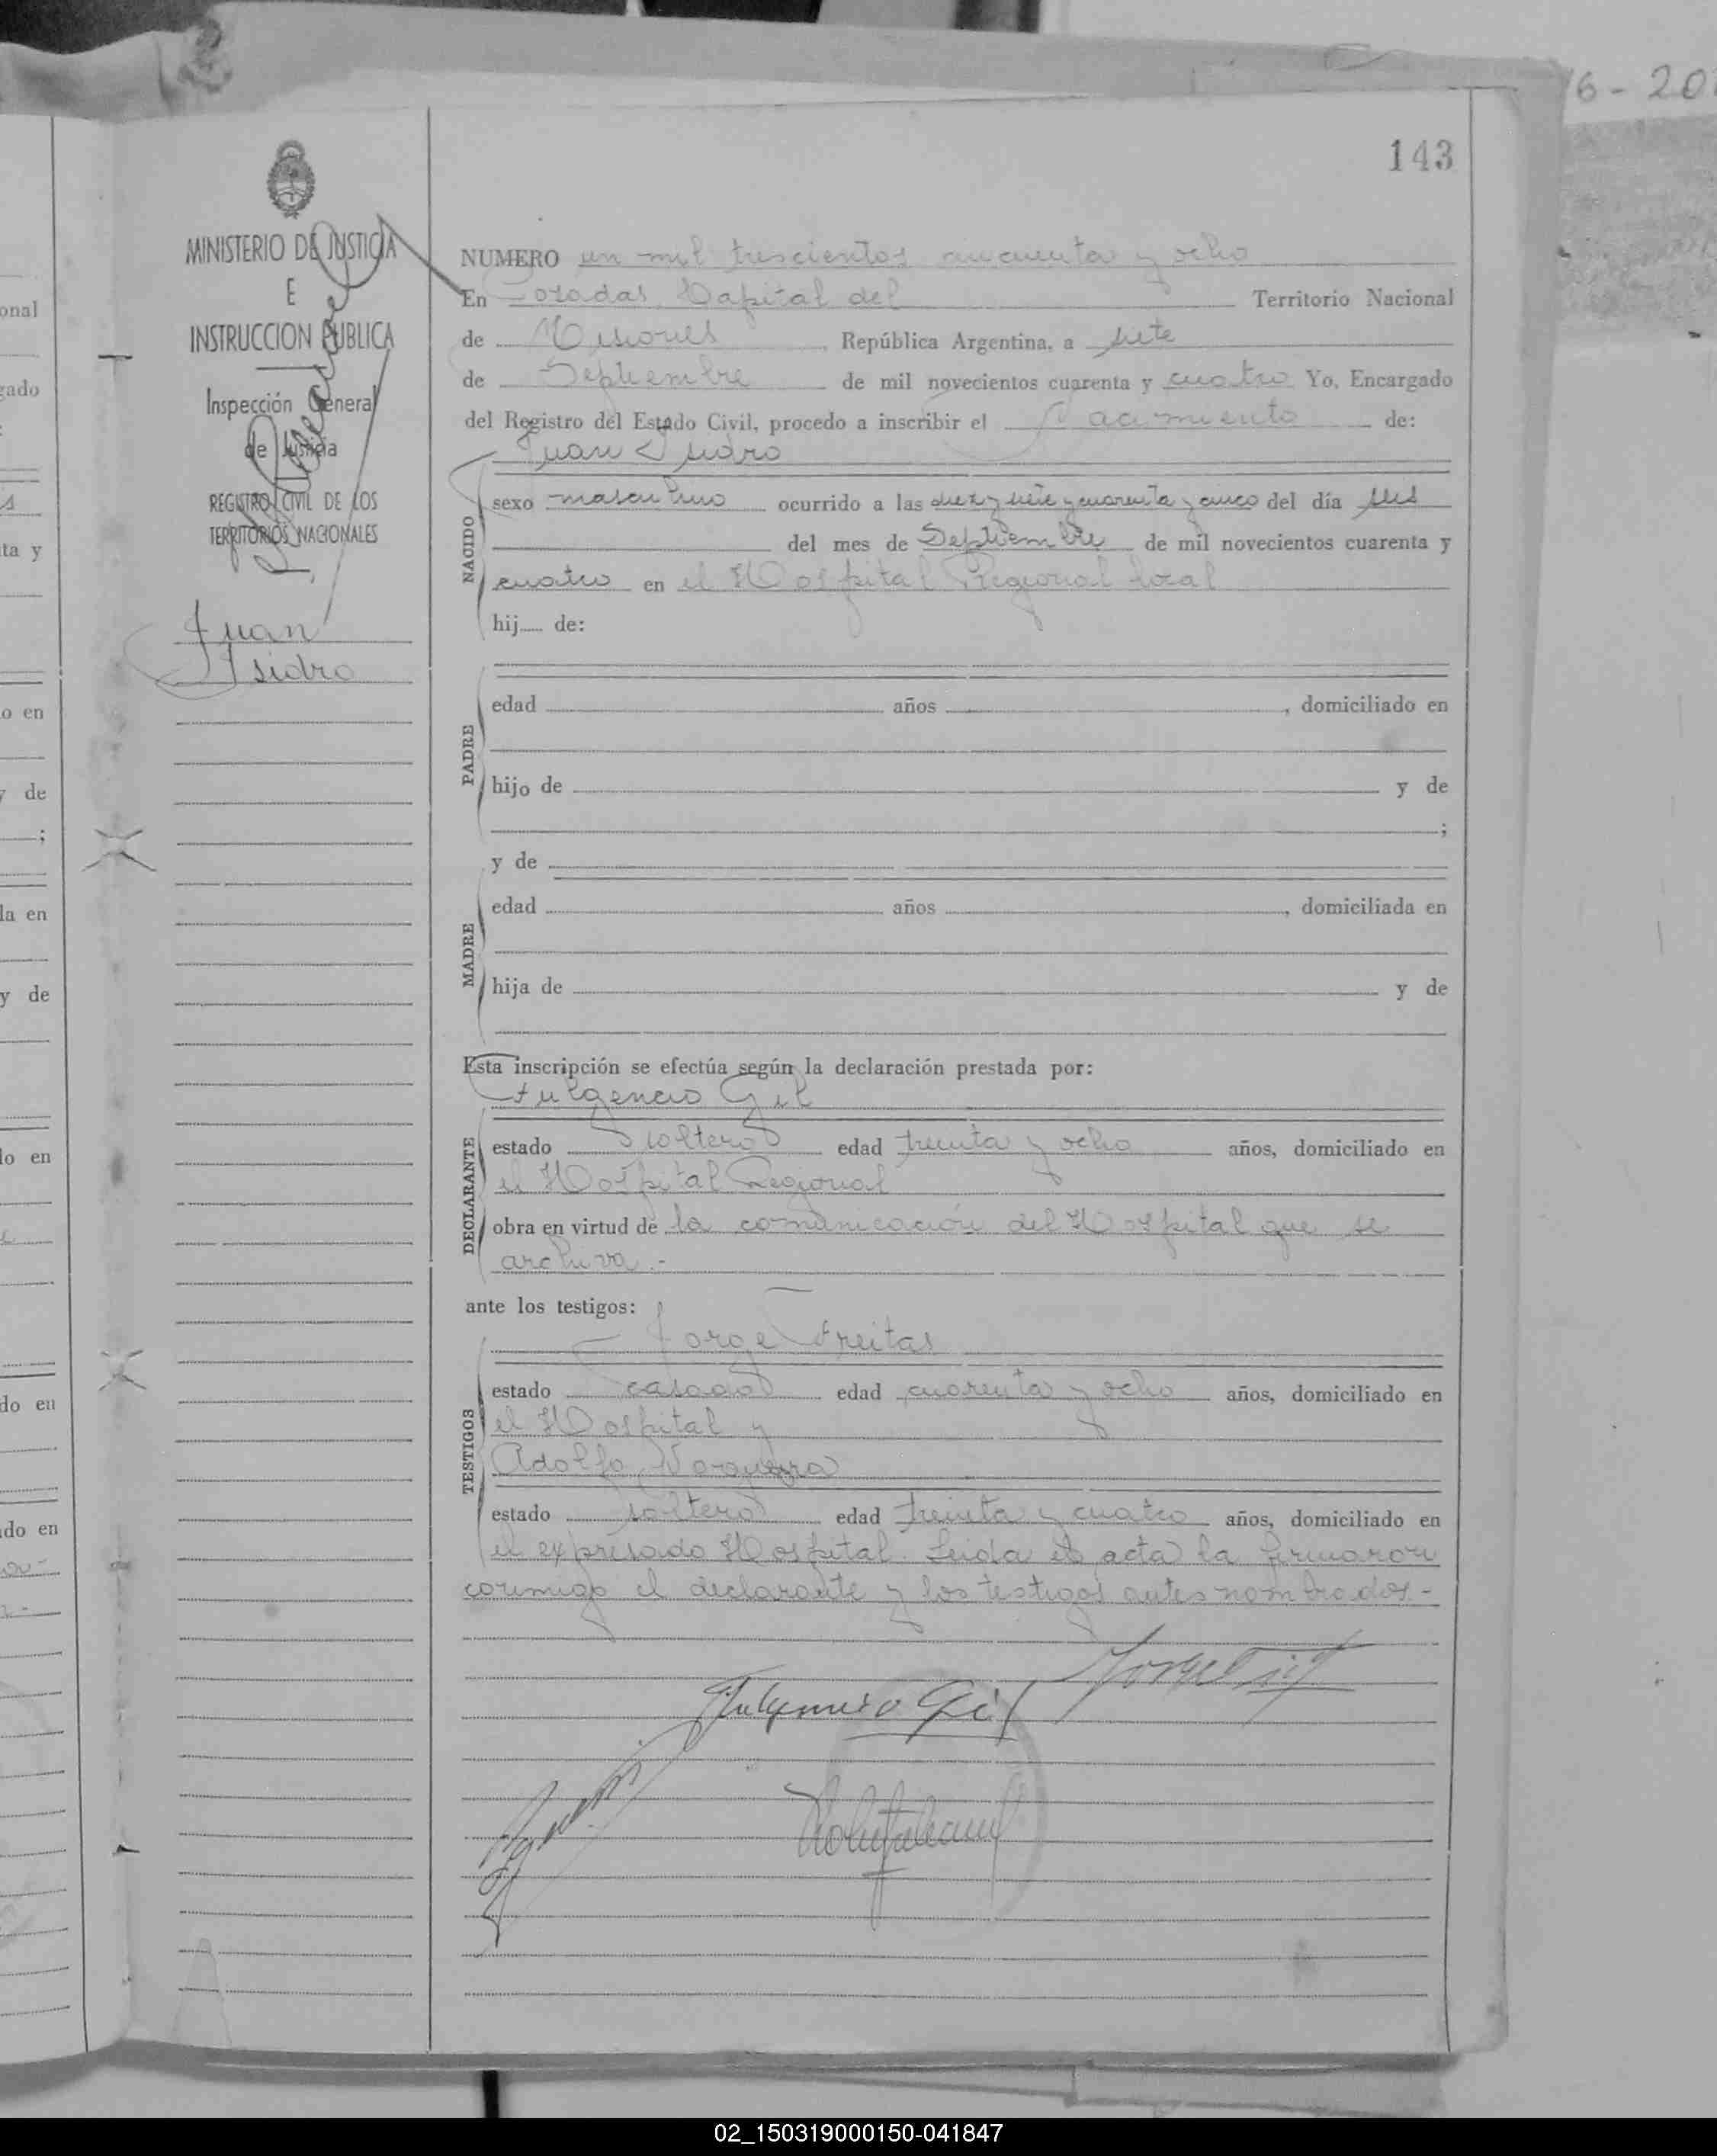 6-20
143
MINISTERIO DE JUSTICIA
E
INSTRUCCION PUBLICA
Inspección General
de Justicia
REGISTRO CIVIL DE LOS
TERRITORIOS NACIONALES
Juan
Isidro
NUMERO un mil trescientos cincuenta y ocho
En Posadas, Capital del Territorio Nacional
de Misiones República Argentina, a siete
de Septiembre de mil novecientos cuarenta y cuatro Yo, Encargado
del Registro del Estado Civil, procedo a inscribir el Nacimiento de:
Juan Isidro
NACIDO
sexo masculino ocurrido a las diez y siete y cuarenta y cinco del día seis
del mes de Septiembre de mil novecientos cuarenta y
cuatro en el Hospital Regional local
hij de:
PADRE
edad años , domiciliado en
hijo de y de
;
y de
MADRE
edad años , domiciliada en
hija de y de
Esta inscripción se efectúa según la declaración prestada por:
Fulgencio Gil
DECLARANTE
estado soltero edad treinta y ocho años, domiciliado en
el Hospital Regional
obra en virtud de la comunicación del Hospital que se
archiva.-
ante los testigos:
Jorge Freitas
TESTIGOS
estado casado edad cuarenta y ocho años, domiciliado en
el Hospital y
Adolfo
estado soltero edad treinta y cuatro años, domiciliado en
el expresado Hospital. Leida el acta la firmaron
conmigo el declarante y los testigos antes nombrados.-
Fulgencio Gil
onal
gado
ta y
o en
y de
;
la en
y de
lo en
do en
do en
02_150319000150-041847